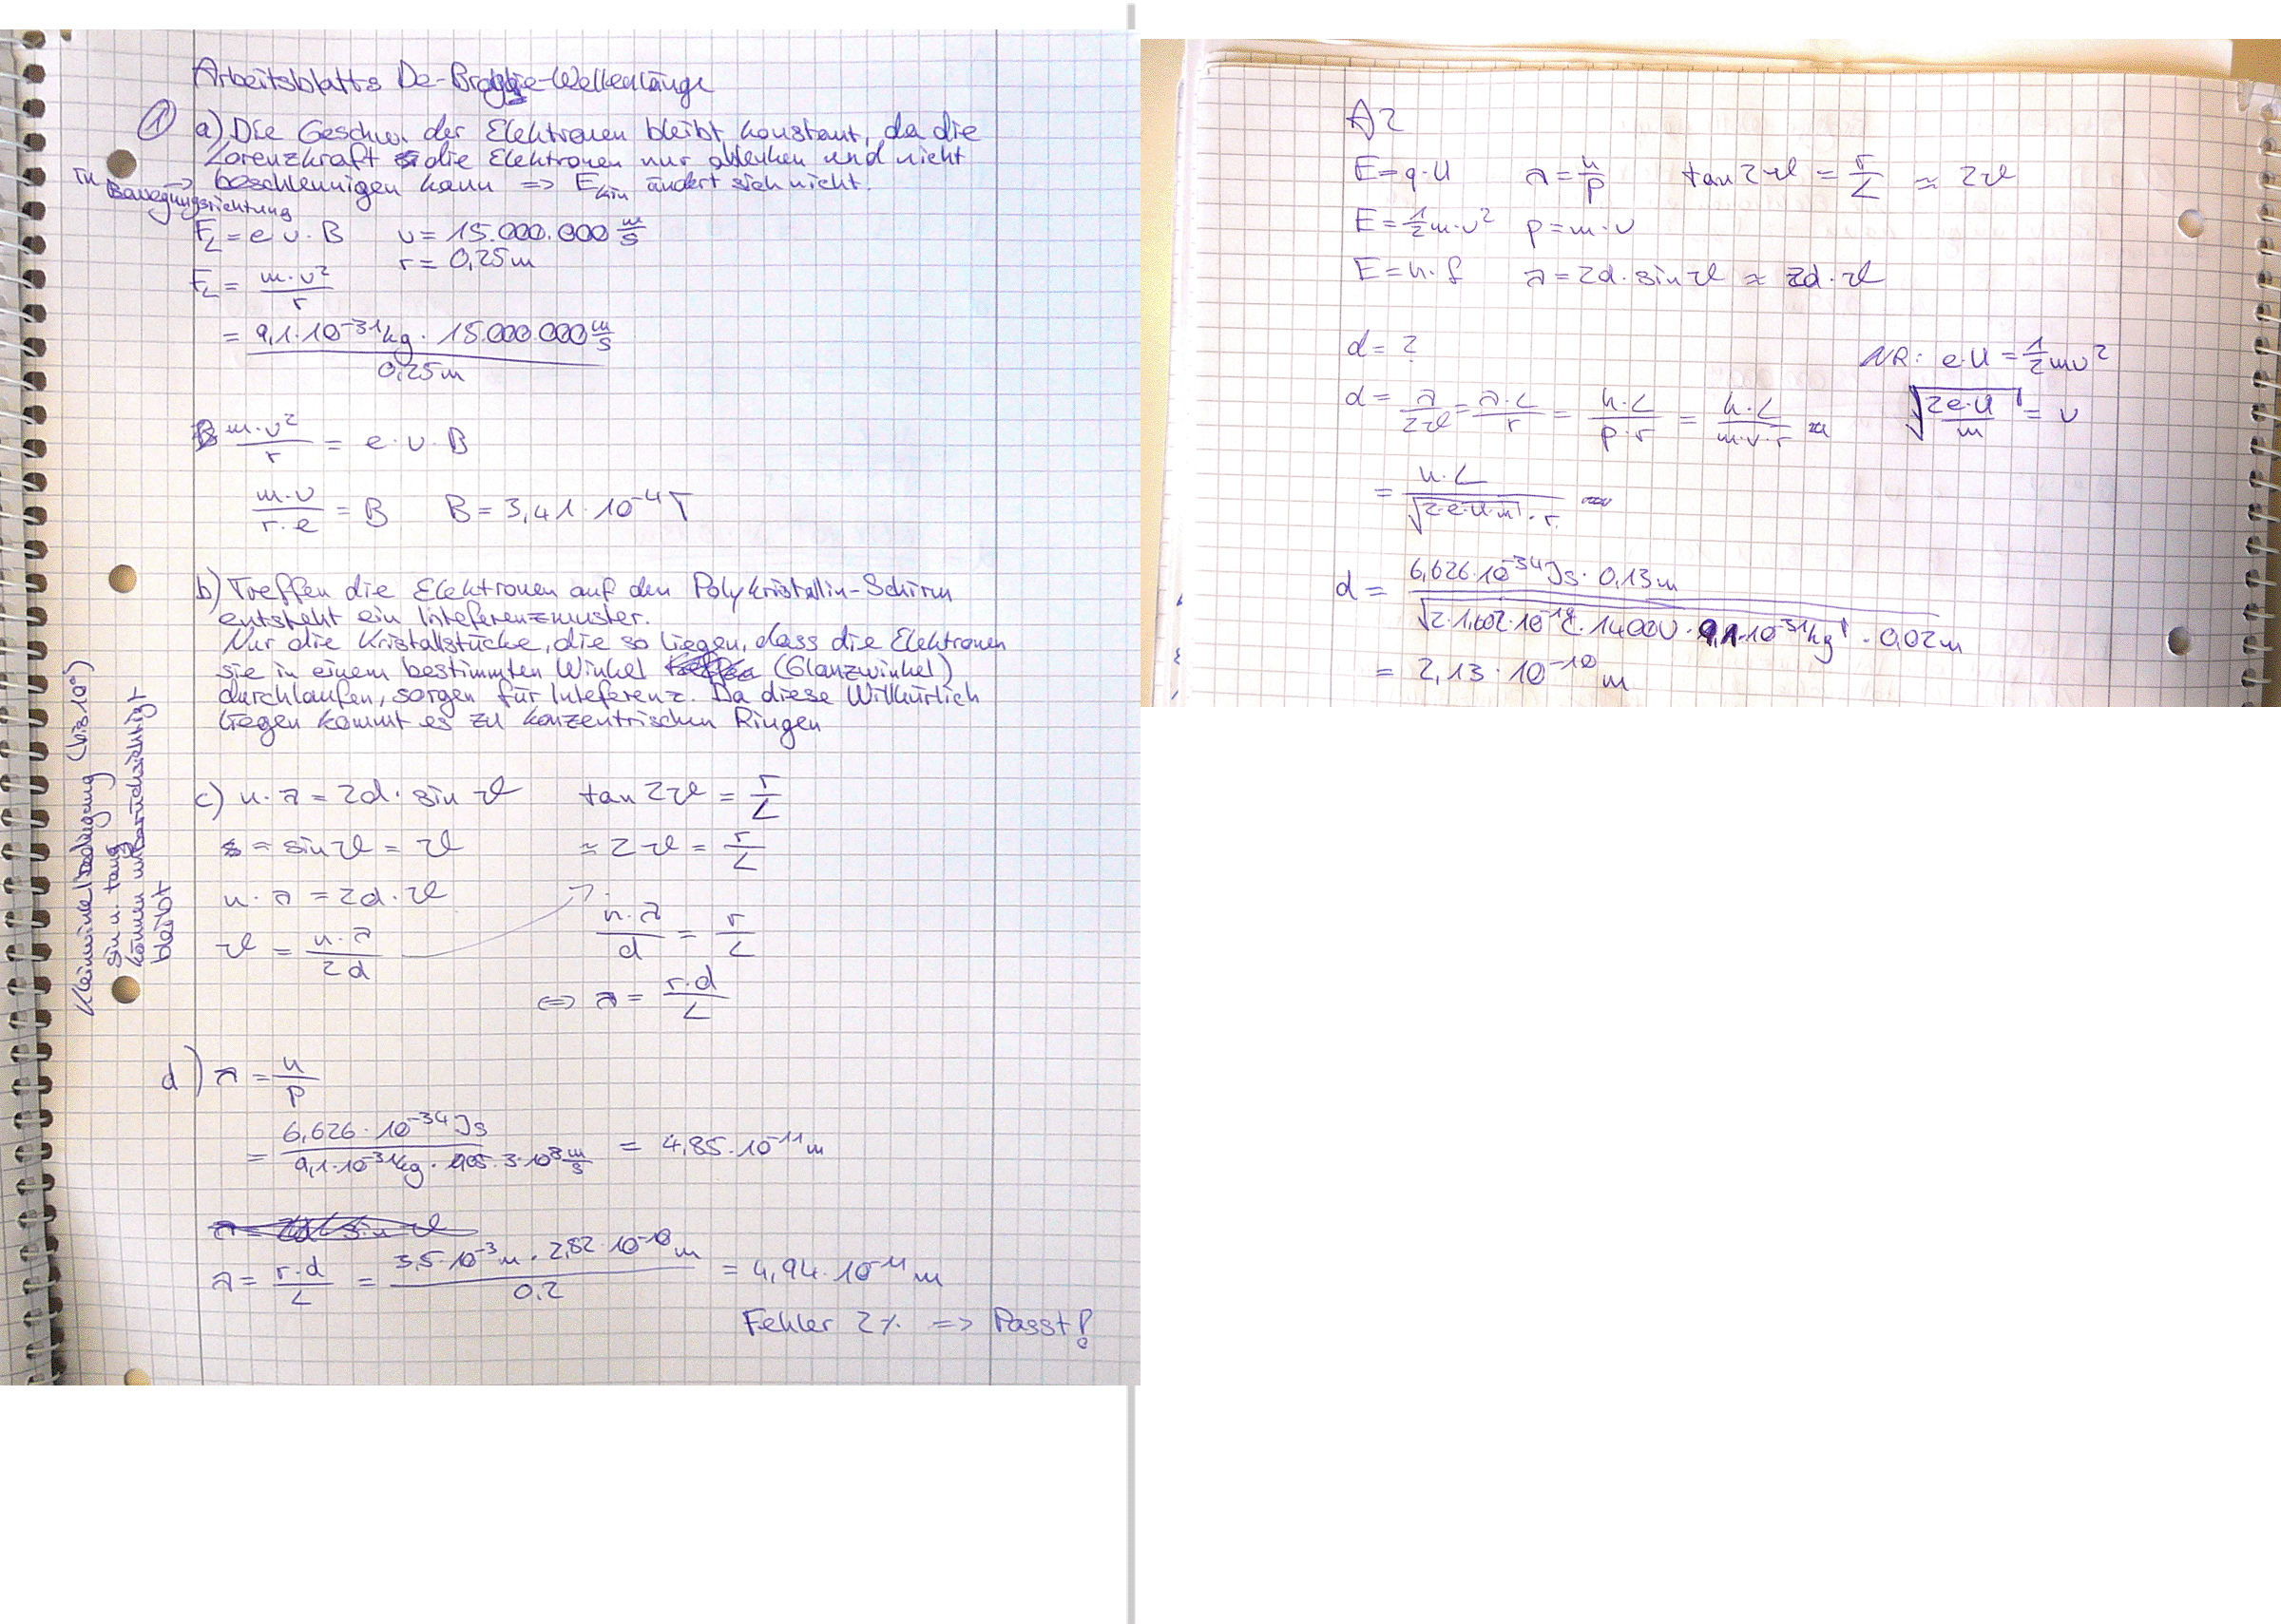 Arbeitsblatts De-Broglie-Wellenlänge
① a) Die Geschw. der Elektronen bleibt konstant, da die
Lorenzkraft die Elektronen nur ablenken und nicht
in Bewegungsrichtung → beschleunigen kann => E_kin ändert sich nicht.
F_L = e v · B v = 15.000.000 m/s
r = 0,25m
F_L = m·v²/r
= 9,1·10⁻³¹kg · 15.000.000 m/s / 0,25m
m·v²/r = e · v · B
m·v/r·e = B B = 3,41 · 10⁻⁴T
b) Treffen die Elektronen auf den Polykristallin-Schirm
entsteht ein Inteferenzmuster.
Nur die Kristallstücke, die so liegen, dass die Elektronen
sie in einem bestimmten Winkel (Glanzwinkel)
durchlaufen, sorgen für Inteferenz. Da diese Willkürlich
liegen kommt es zu konzentrischen Ringen
Kleinwinkelbedingung (bis 10°)
sin u. tan
können unberücksichtigt
bleibt
c) n·λ = 2d · sin ϑ tan 2ϑ = r/L
= sin ϑ = ϑ ≈ 2ϑ = r/L
n · λ = 2d · ϑ
n·λ/d = r/L
ϑ = n·λ/2d
<=> λ = r·d/L
d) λ = h/p
= 6,626 · 10⁻³⁴Js / 9,1·10⁻³¹kg · 0,05·3·10⁸ m/s = 4,85·10⁻¹¹m
λ = r·d/L = 3,5·10⁻³m · 2,82·10⁻¹⁰m / 0,2 = 4,94·10⁻¹¹m
Fehler 2% => Passt!
A2
E = q·U λ = h/p tan 2ϑ = r/L ≈ 2ϑ
E = ½m·v² p = m·v
E = h·f λ = 2d · sin ϑ ≈ 2d · ϑ
d = ?
NR: e·U = ½mv²
d = λ/2ϑ = λ·L/r = h·L/p·r = h·L/m·v·r √(2e·U/m) = v
= h·L/√(2·e·U·m) · r
d = 6,626·10⁻³⁴Js · 0,13m / √(2·1,602·10⁻¹⁹C·1400V·9,1·10⁻³¹kg) · 0,02m
= 2,13 · 10⁻¹⁰m